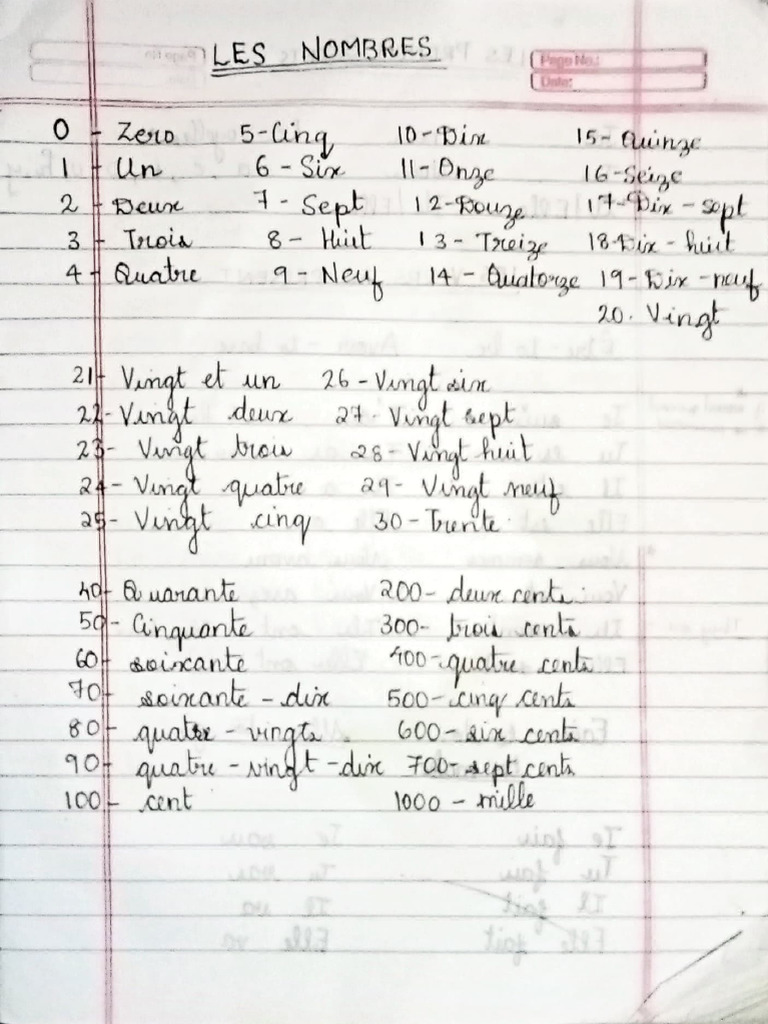 LES NOMBRES
Page No.:
Date:
0 - Zero 5-Cinq 10-Dix 15-Quinze
1 - Un 6 - Six 11-Onze 16-Seize
2 - Deux 7 - Sept 12-Douze 17-Dix-sept
3 - Trois 8 - Huit 13-Treize 18-Dix-huit
4 - Quatre 9 - Neuf 14-Quatorze 19-Dix-neuf
20. Vingt
21- Vingt et un 26-Vingt six
22-Vingt deux 27-Vingt sept
23- Vingt trois 28-Vingt huit
24- Vingt quatre 29- Vingt neuf
25- Vingt cinq 30-Trente
40- Quarante 200- deux cents
50- Cinquante 300- trois cents
60- soixante 400-quatre cents
70- soixante-dix 500-cinq cents
80- quatre-vingts 600-six cents
90- quatre-vingt-dix 700-sept cents
100- cent 1000-mille